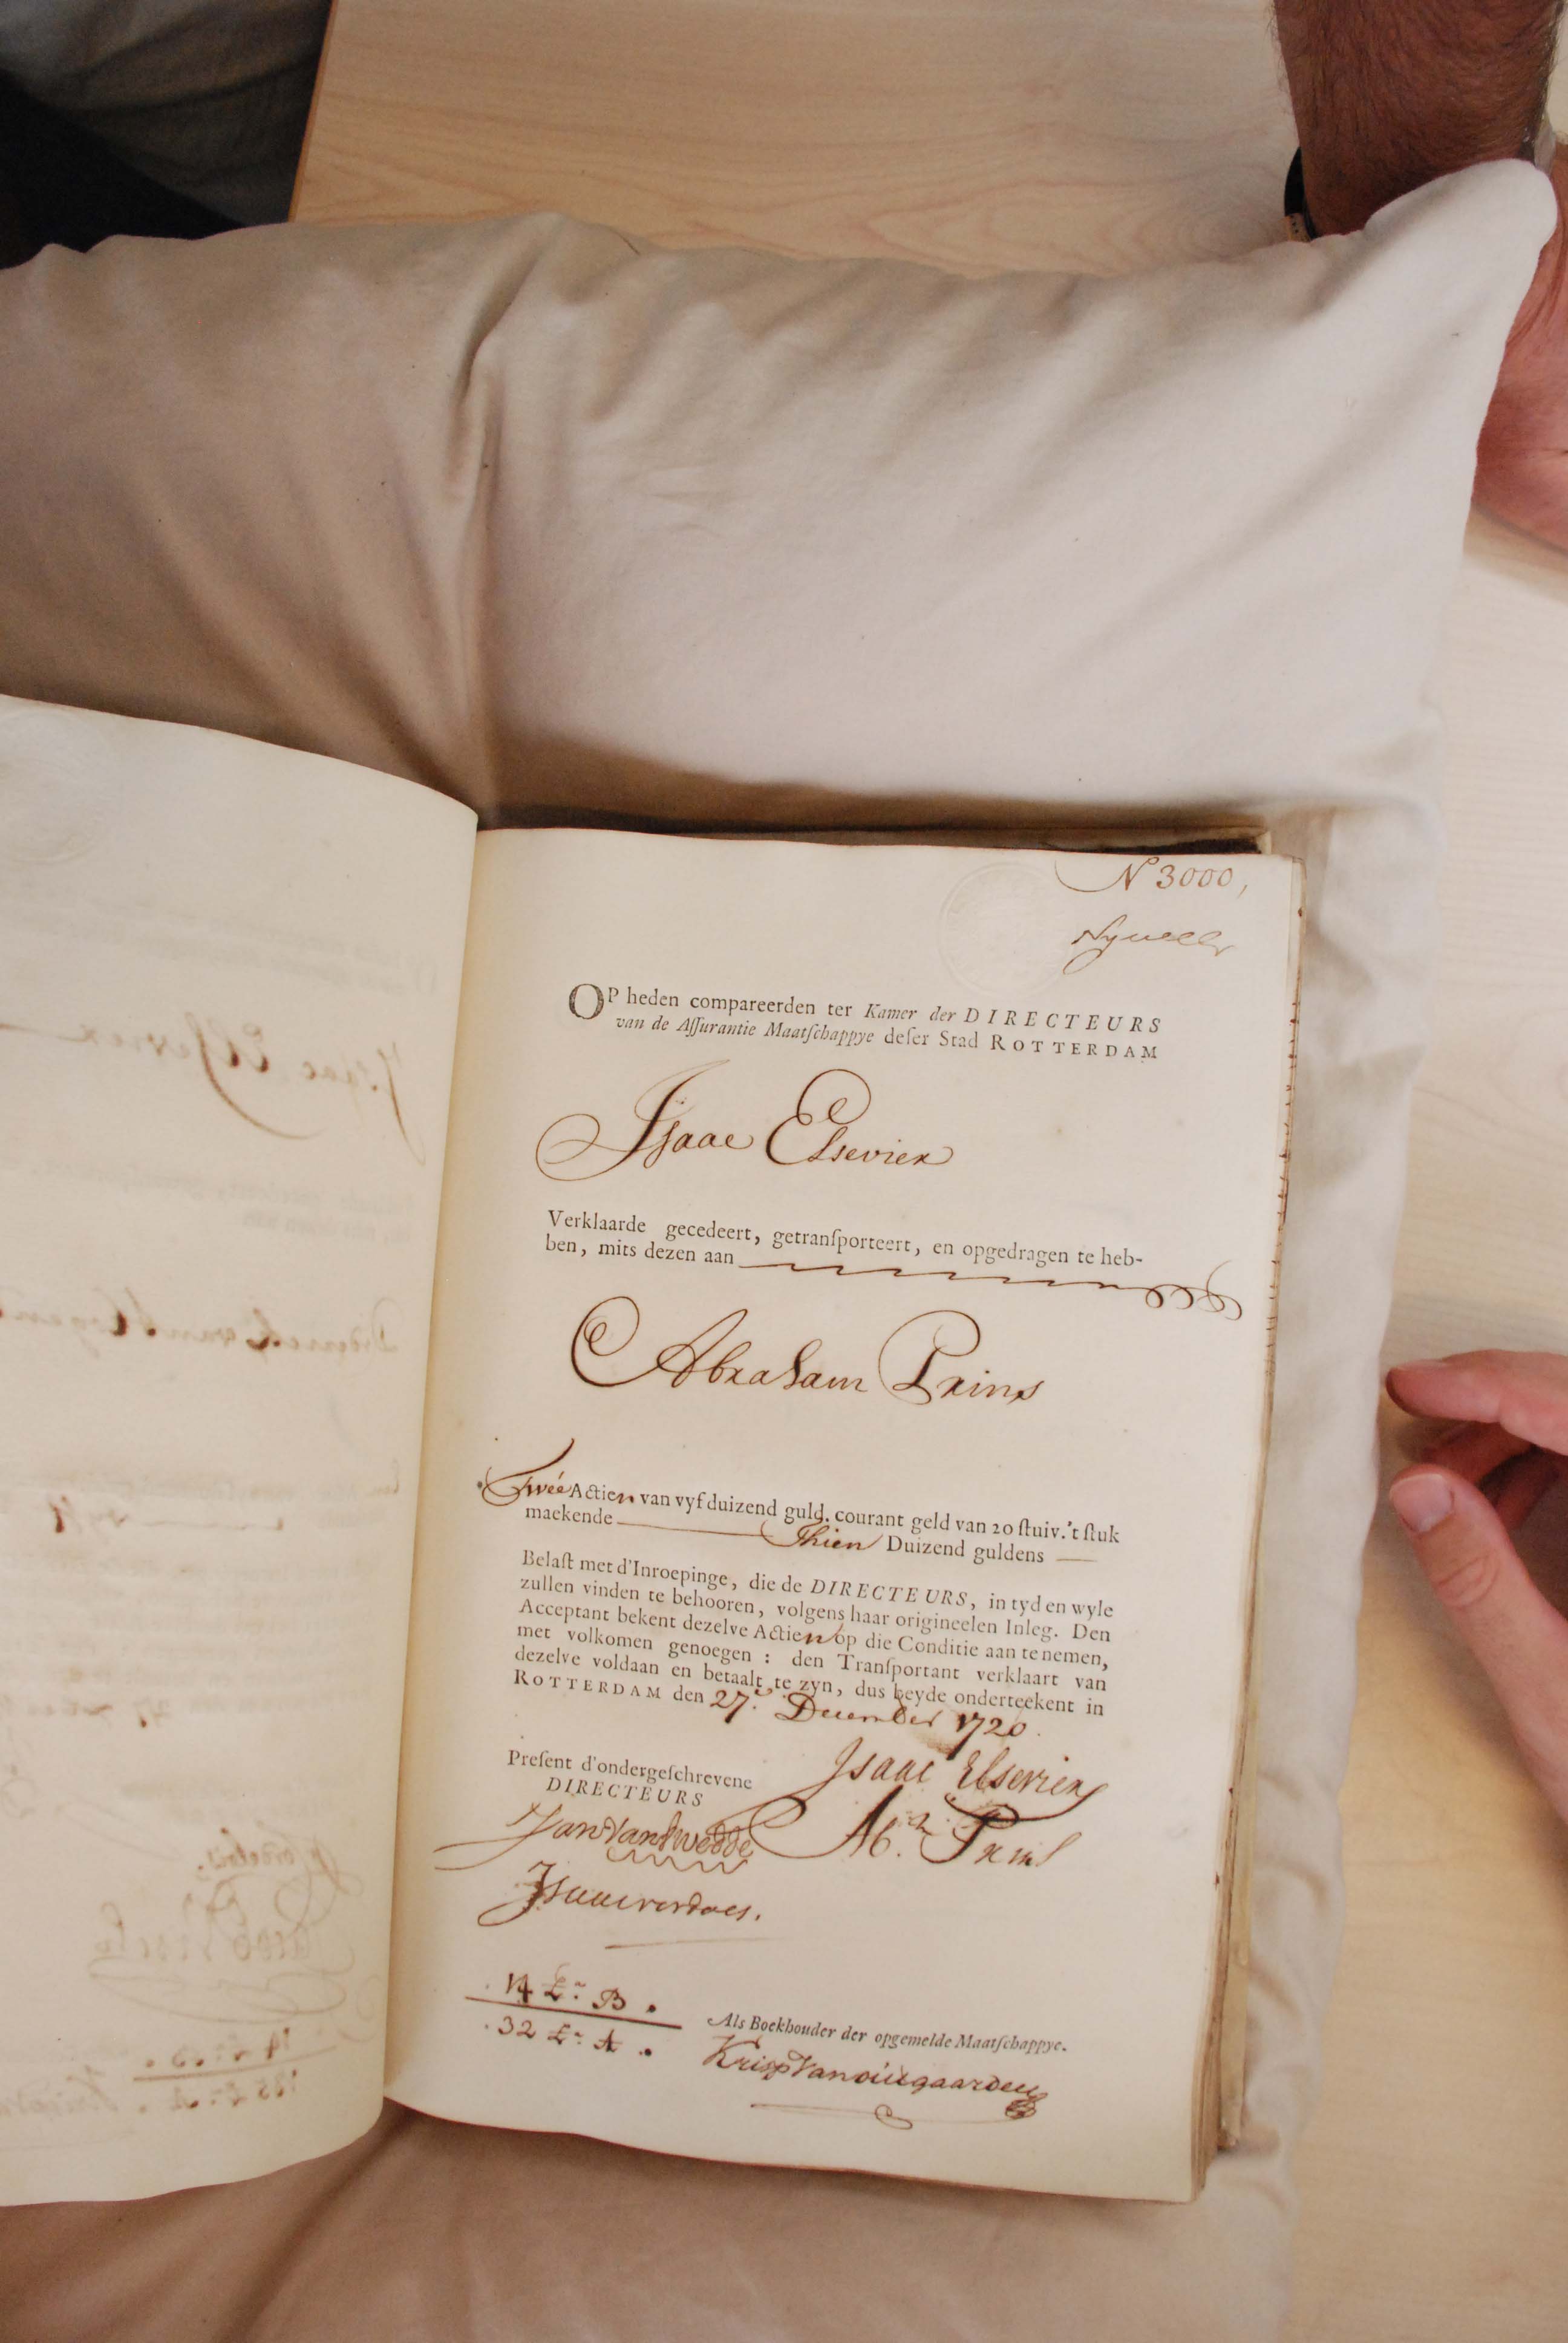 N 3000,
OP heden compareerden ter Kamer der DIRECTEURS
van de Aſſurantie Maatſchappye deſer Stad ROTTERDAM
Isaac Elsevier
Verklaarde gecedeert, getranſporteert, en opgedragen te heb-
ben, mits dezen aan
Abraham Prins
Twée Actien van vyf duizend guld. courant geld van 20 ſtuiv. 't ſtuk
maekende Thien Duizend guldens
Belaſt met d'Inroepinge, die de DIRECTEURS, in tyd en wyle
zullen vinden te behooren, volgens haar origineelen Inleg. Den
Acceptant bekent dezelve Actien op die Conditie aan te nemen,
met volkomen genoegen : den Tranſportant verklaart van
dezelve voldaan en betaalt te zyn, dus beyde onderteekent in
ROTTERDAM den 27. December 1720.
Isaac Elsevier
Preſent d'ondergeſchrevene
DIRECTEURS
Abr. Prins
14 Lr. B.
32 Lr. A.
Als Boekhouder der opgemelde Maatſchappye.